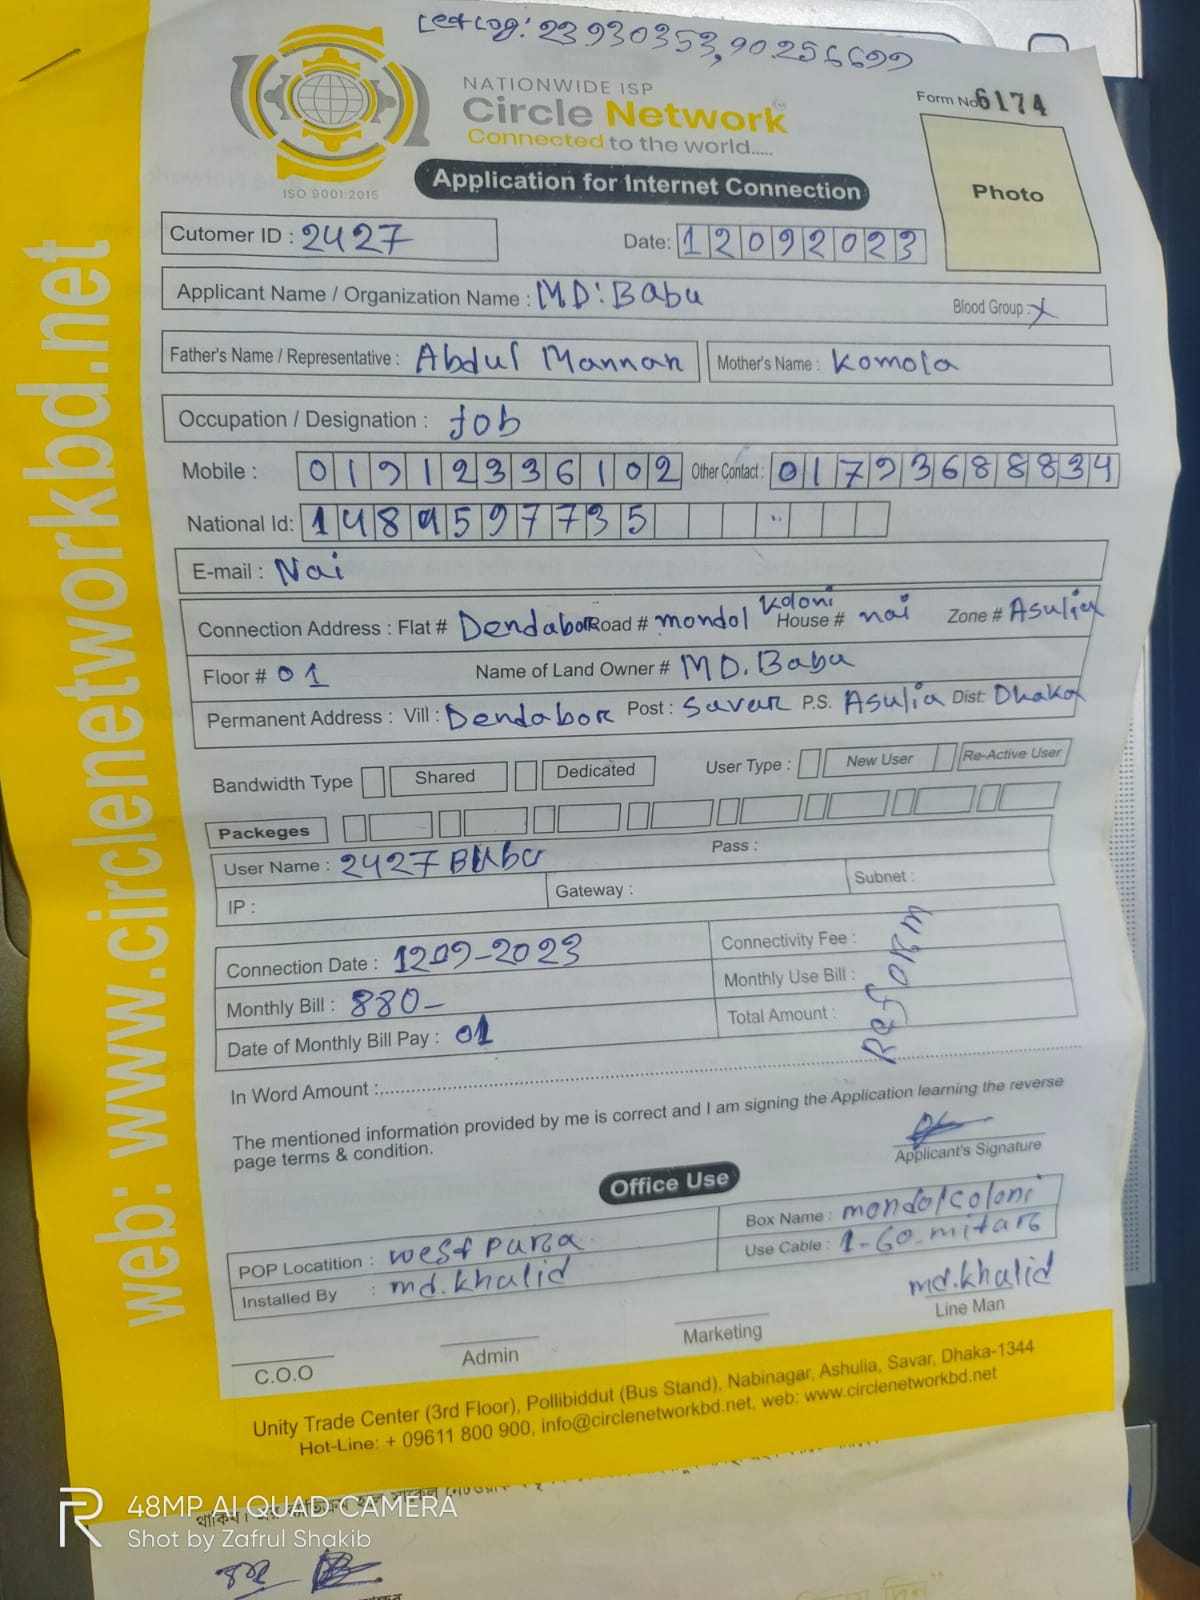 23930353,90256699
NATIONWIDE ISP
Circle Network
Connected to the world.....
ISO 9001:2015
Form No 6174
Photo
Application for Internet Connection
Cutomer ID : 2427 Date: 12092023
Applicant Name / Organization Name : MD: Babu Blood Group : x
Father's Name / Representative : Abdul Mannan Mother's Name : Komola
Occupation / Designation : Job
Mobile : 01912336102 Other Contact : 01793688834
National Id: 1489597735
E-mail : Nai
Connection Address : Flat # Dendabor Road # mondol koloni House # nai Zone # Asulia
Floor # 01 Name of Land Owner # MD. Babu
Permanent Address : Vill : Dendabor Post : Savar P.S. Asulia Dist: Dhaka
Bandwidth Type Shared Dedicated User Type : New User Re-Active User
Packeges
User Name : 2427 Babu Pass :
IP : Gateway : Subnet :
Connection Date : 1209-2023 Connectivity Fee :
Monthly Bill : 880- Monthly Use Bill :
Date of Monthly Bill Pay : 01 Total Amount :
Reform
In Word Amount :
The mentioned information provided by me is correct and I am signing the Application learning the reverse
page terms & condition.
Applicant's Signature
Office Use
POP Locatition : west para Box Name : mondol coloni
Installed By : md. khalid Use Cable : 1-60 mitar
md. khalid
C.O.O Admin Marketing Line Man
Unity Trade Center (3rd Floor), Pollibiddut (Bus Stand), Nabinagar, Ashulia, Savar, Dhaka-1344
Hot-Line: + 09611 800 900, info@circlenetworkbd.net, web: www.circlenetworkbd.net
web: www.circlenetworkbd.net
48MP AI QUAD CAMERA
Shot by Zafrul Shakib